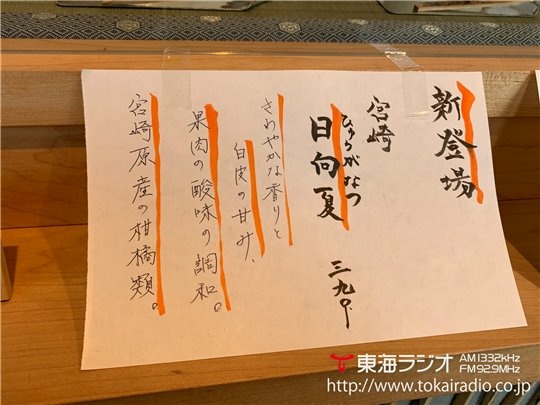 新登場
宮崎
ひゅうがなつ
日向夏
三九〇
さわやかな香りと
白皮の甘み、
果肉の酸味の調和。
宮崎原産の柑橘類。
東海ラジオ AM1332kHz
FM92.9MHz
http://www.tokairadio.co.jp